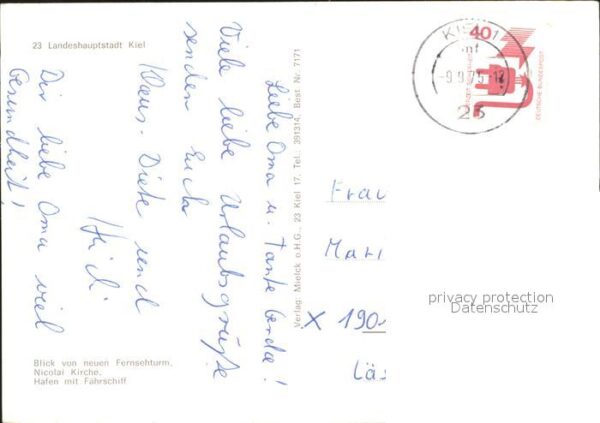 23 Landeshauptstadt Kiel
Liebe Oma u. Tante Gerda!
Viele liebe Urlaubsgrüße
senden Euch
Klaus-Dieter und
Heidi
Dir liebe Oma viel
Gesundheit!
Blick von neuen Fernsehturm,
Nicolai Kirche,
Hafen mit Fährschiff
Verlag: Mielck o.H.G., 23 Kiel 17, Tel.: 391314, Best. Nr. 7171
KIEL 1
mf
-9.9.75-17
23
40
DEUTSCHE BUNDESPOST
Frau
Mari
X 190
Läs
privacy protection
Datenschutz